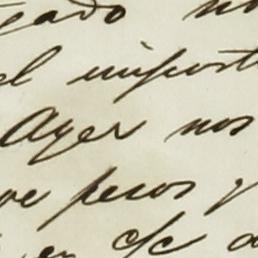 gado no
el import
Ayer nos
ve pesos y
en c/c a